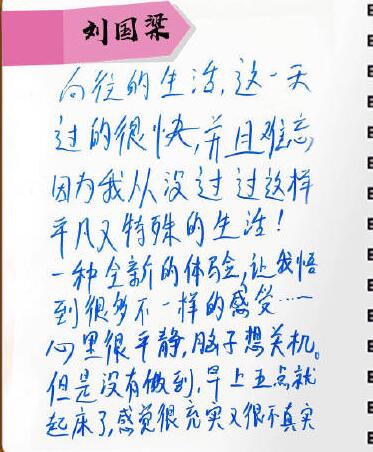 刘国梁
向往的生活,这一天
过的很快,并且难忘
因为我从没过过这样
平凡又特殊的生活!
一种全新的体验,让我悟
到很多不一样的感觉……
心里很平静,脑子想关机。
但是没有做到,早上五点就
起床了,感觉很充实又很不真实